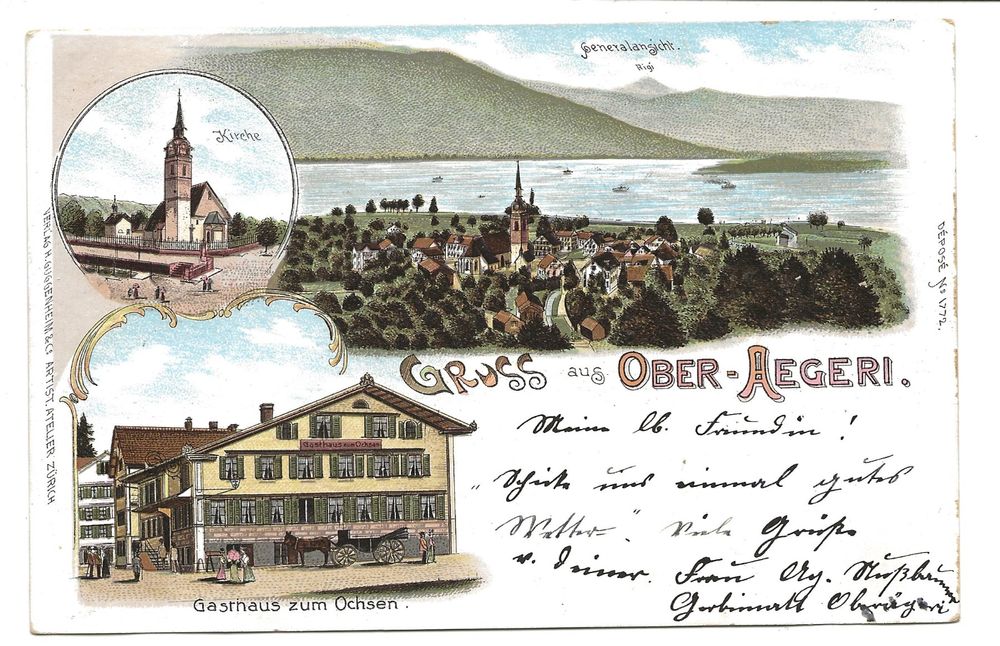 Generalansicht.
Rigi
Kirche
VERLAG H. GUGGENHEIM & Co ARTIST. ATELIER ZÜRICH
DEPOSÉ No 1772.
GRUSS aus OBER-AEGERI.
Gasthaus zum Ochsen
Gasthaus zum Ochsen.
Meine lb. Freundin!
"Schicke uns einmal gutes
Wetter". Viele Grüße
v. deiner. Frau Ag. Nußbaumer
Oberägeri